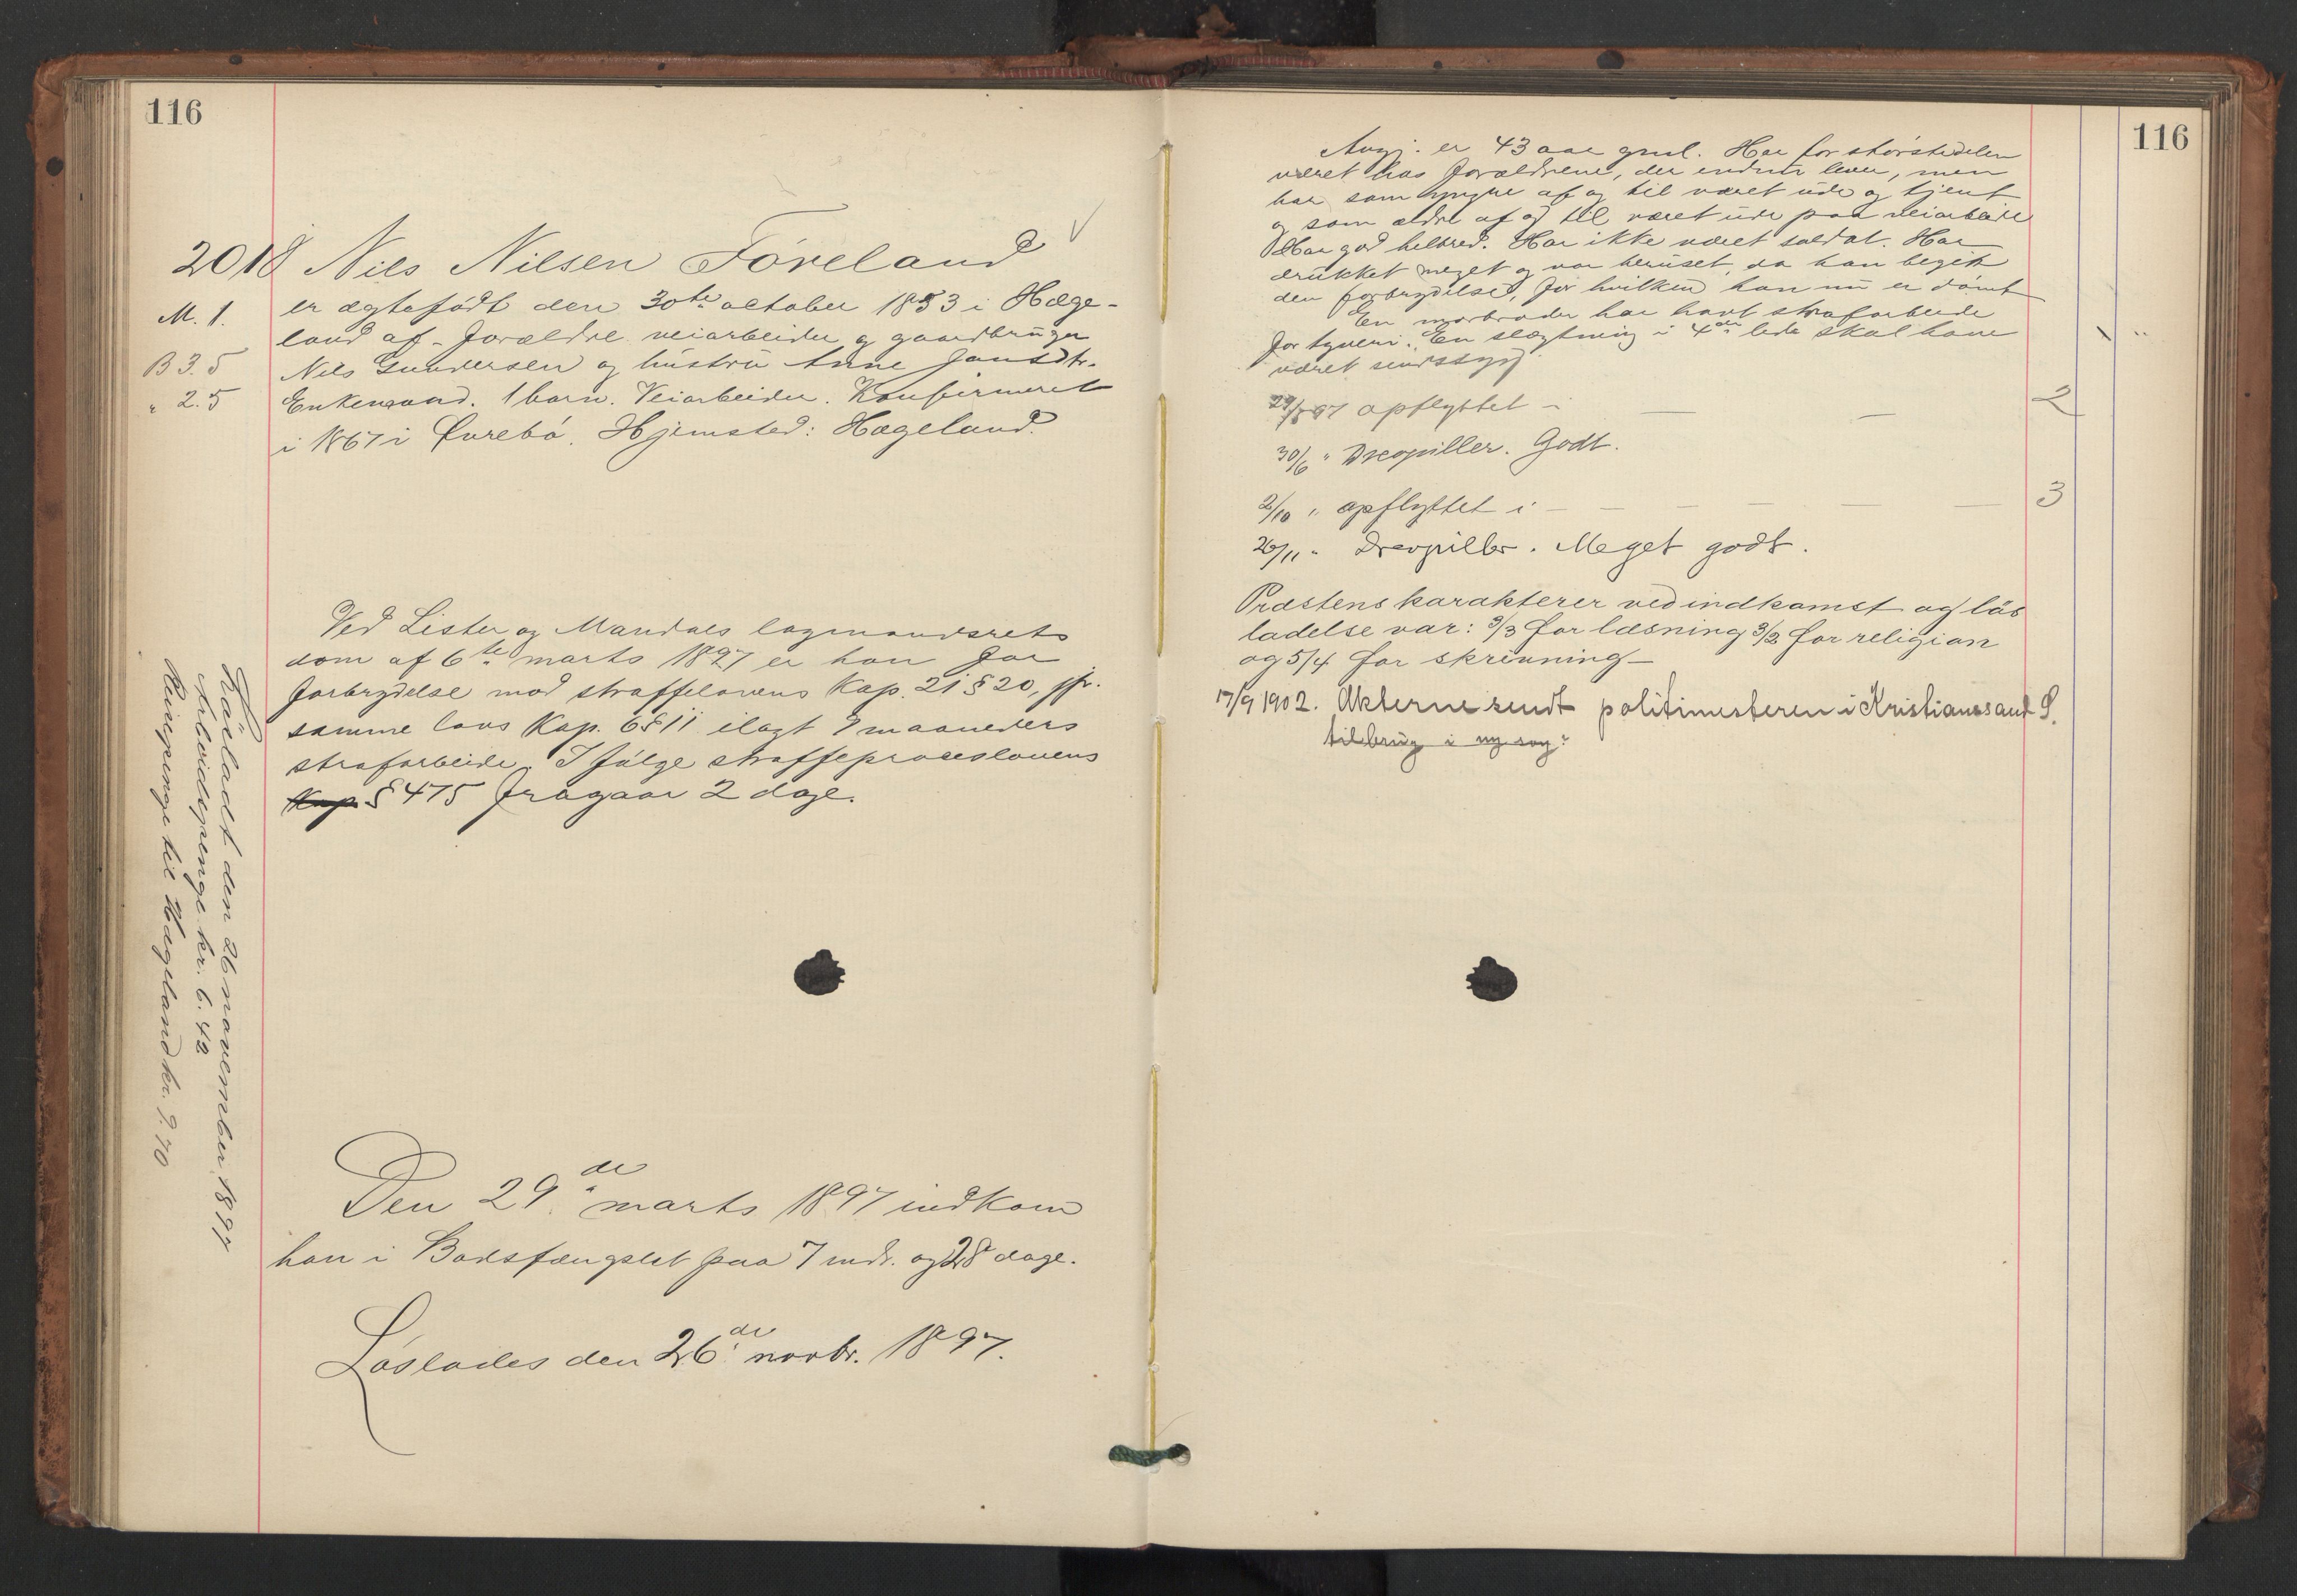 116
2018 Nils Nilsen Föreland
M. 1. er ægtefödt den 30te october 1853 i Hæge-
land af forældre veiarbeider og gaardbrüger
B 3.5 Nils Gundersen og hüstrü Anne Jansdtr.
" 2.5 Enkemand. 1 barn. Veiarbeider. Konfirmeret
i 1867 i Övrebö. Hjemsted: Hægeland.
Ved Lister og Mandals lagmandsrets
dom af 6te marts 1897 er han for
forbrydelse mod straffelovens Kap. 21 § 20, jfr.
samme lovs Kap. 6 § 11 ilagt 8 maaneders
strafarbeide. I fölge straffeproceslovens
Kap. § 475 fragaar 2 dage.
Lösladt den 26 november 1897
Arbeidspenge kr. 6.42
Reisepenge til Hægeland kr. 9.70
Den 29de marts 1897 indkom
han i Bodsfængslet paa 7 mdr. og 28 dage.
Löslades den 26de novbr. 1897.
116
Angj. er 43 aar gml. Har for störstedelen
været hos forældrene, der endnu lever, men
har som yngre af og til været üde og tjent
og som ældre af og til været üde paa veiarbeide
Har god helbred. Har ikke været soldat. Har
drukket meget og var berüset, da han begik
den forbrydelse, for hvilken han nü er dömt
En morbroder har havt strafarbeide
for tyveri. En slægtning i 4de led skal have
været sindssyg.
29/6 97 opflyttet i — — — 2
30/6 " Dreopiller. Godt.
2/10 " opflyttet i — — — — — — 3
26/11 " Dreopiller. Meget godt.
Præstens karakterer ved indkomst og lös
ladelse var: 3/3 for læsning 3/2 for religion
og 5/4 for skrivning —
17/9 1902. Akterne sendt politimesteren i Kristianssand S.
til brüg i ny sag.